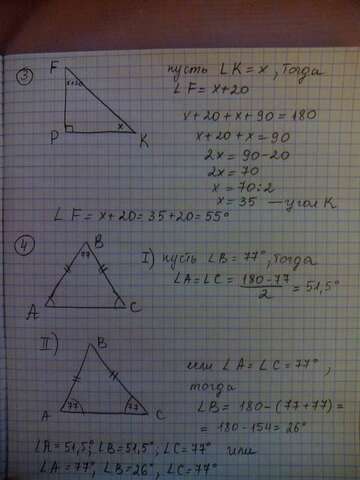 ③
F
x+20
P
x
K
пусть ∠K = x, Тогда
∠F = x+20
x+20+x+90=180
x+20+x=90
2x = 90-20
2x = 70
x = 70:2
x = 35 — угол K
∠F = x+20=35+20=55°
④
B
77
A
C
I) пусть ∠B=77°, Тогда
∠A=∠C= (180-77)/2 = 51,5°
II)
B
77
77
A
C
если ∠A = ∠C = 77°,
тогда
∠B = 180-(77+77)=
= 180-154 = 26°
∠A=51,5°; ∠B=51,5°; ∠C=77° или
∠A=77°, ∠B=26°, ∠C=77°